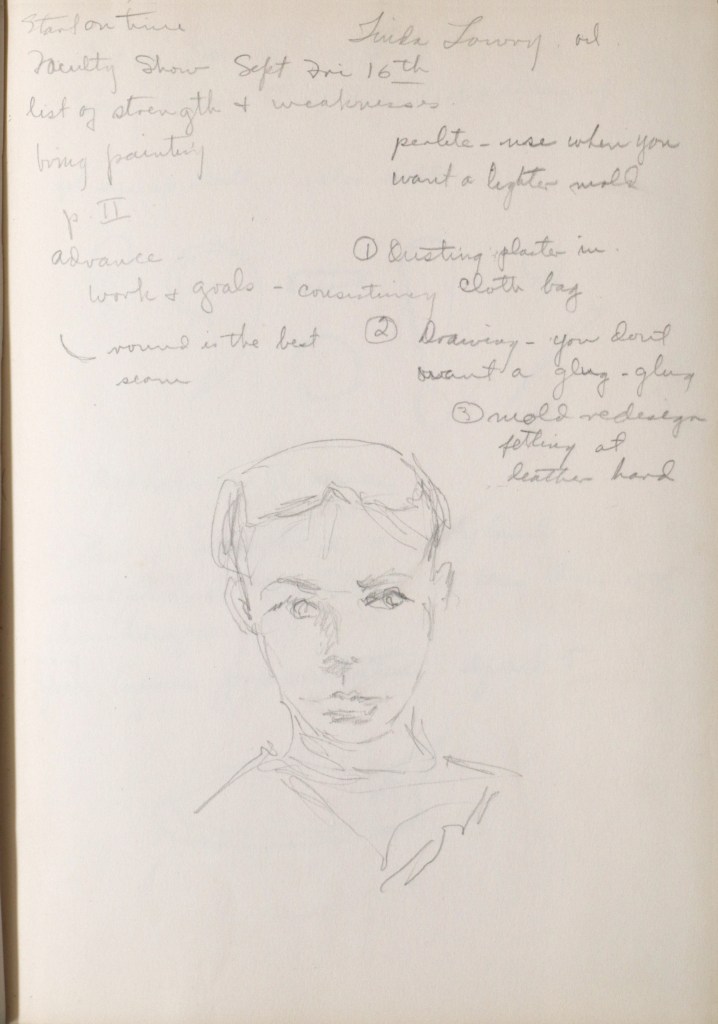 Start on time
Linda Lowry oil
Faculty Show Sept Fri 16th
list of strength & weaknesses
bring painting
p. II
advance
work & goals - consistency
round is the best
seam
perlite - use when you
want a lighter mold
① Dusting plaster in
cloth bag
② Drawing - you don't
want a glug - glug
③ mold redesign
fettling at
leather hard